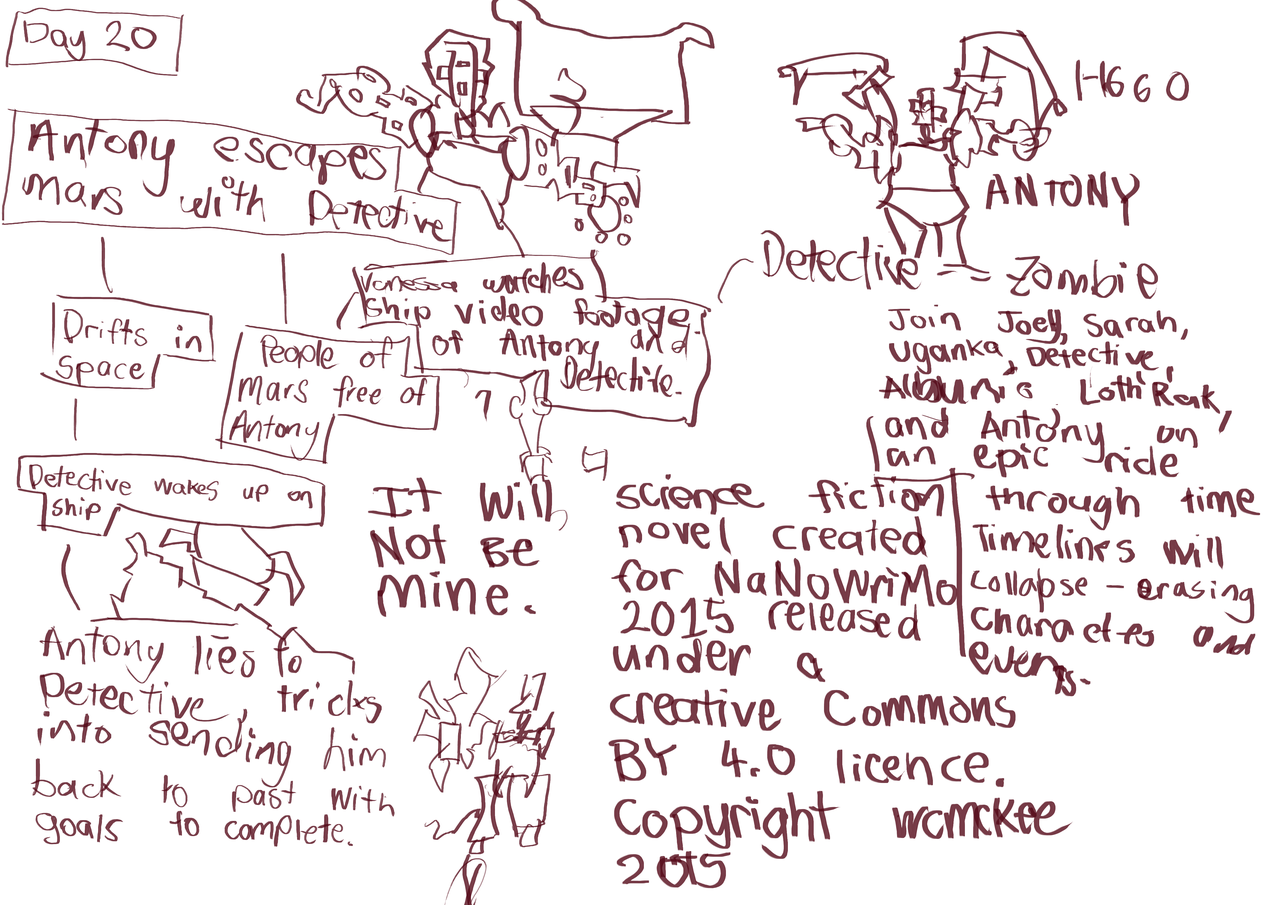 Day 20
Antony escapes
mars with Detective
Drifts in
space
People of
mars free of
Antony
Vanessa watches
ship video footage
of Antony and
Detective.
Detective wakes up on
ship
Antony lies to
Detective, tricks
into sending him
back to past with
goals to complete.
It will
Not Be
mine.
H660
ANTONY
Detective = Zombie
Join Joey, Sarah,
Uganka, Detective,
Loth Rak,
and Antony on
an epic ride
through time
Timelines will
collapse - erasing
characters and
events.
science fiction
novel created
for NaNoWriMo
2015 released
under a
creative Commons
BY 4.0 licence.
Copyright wcmckee
2015